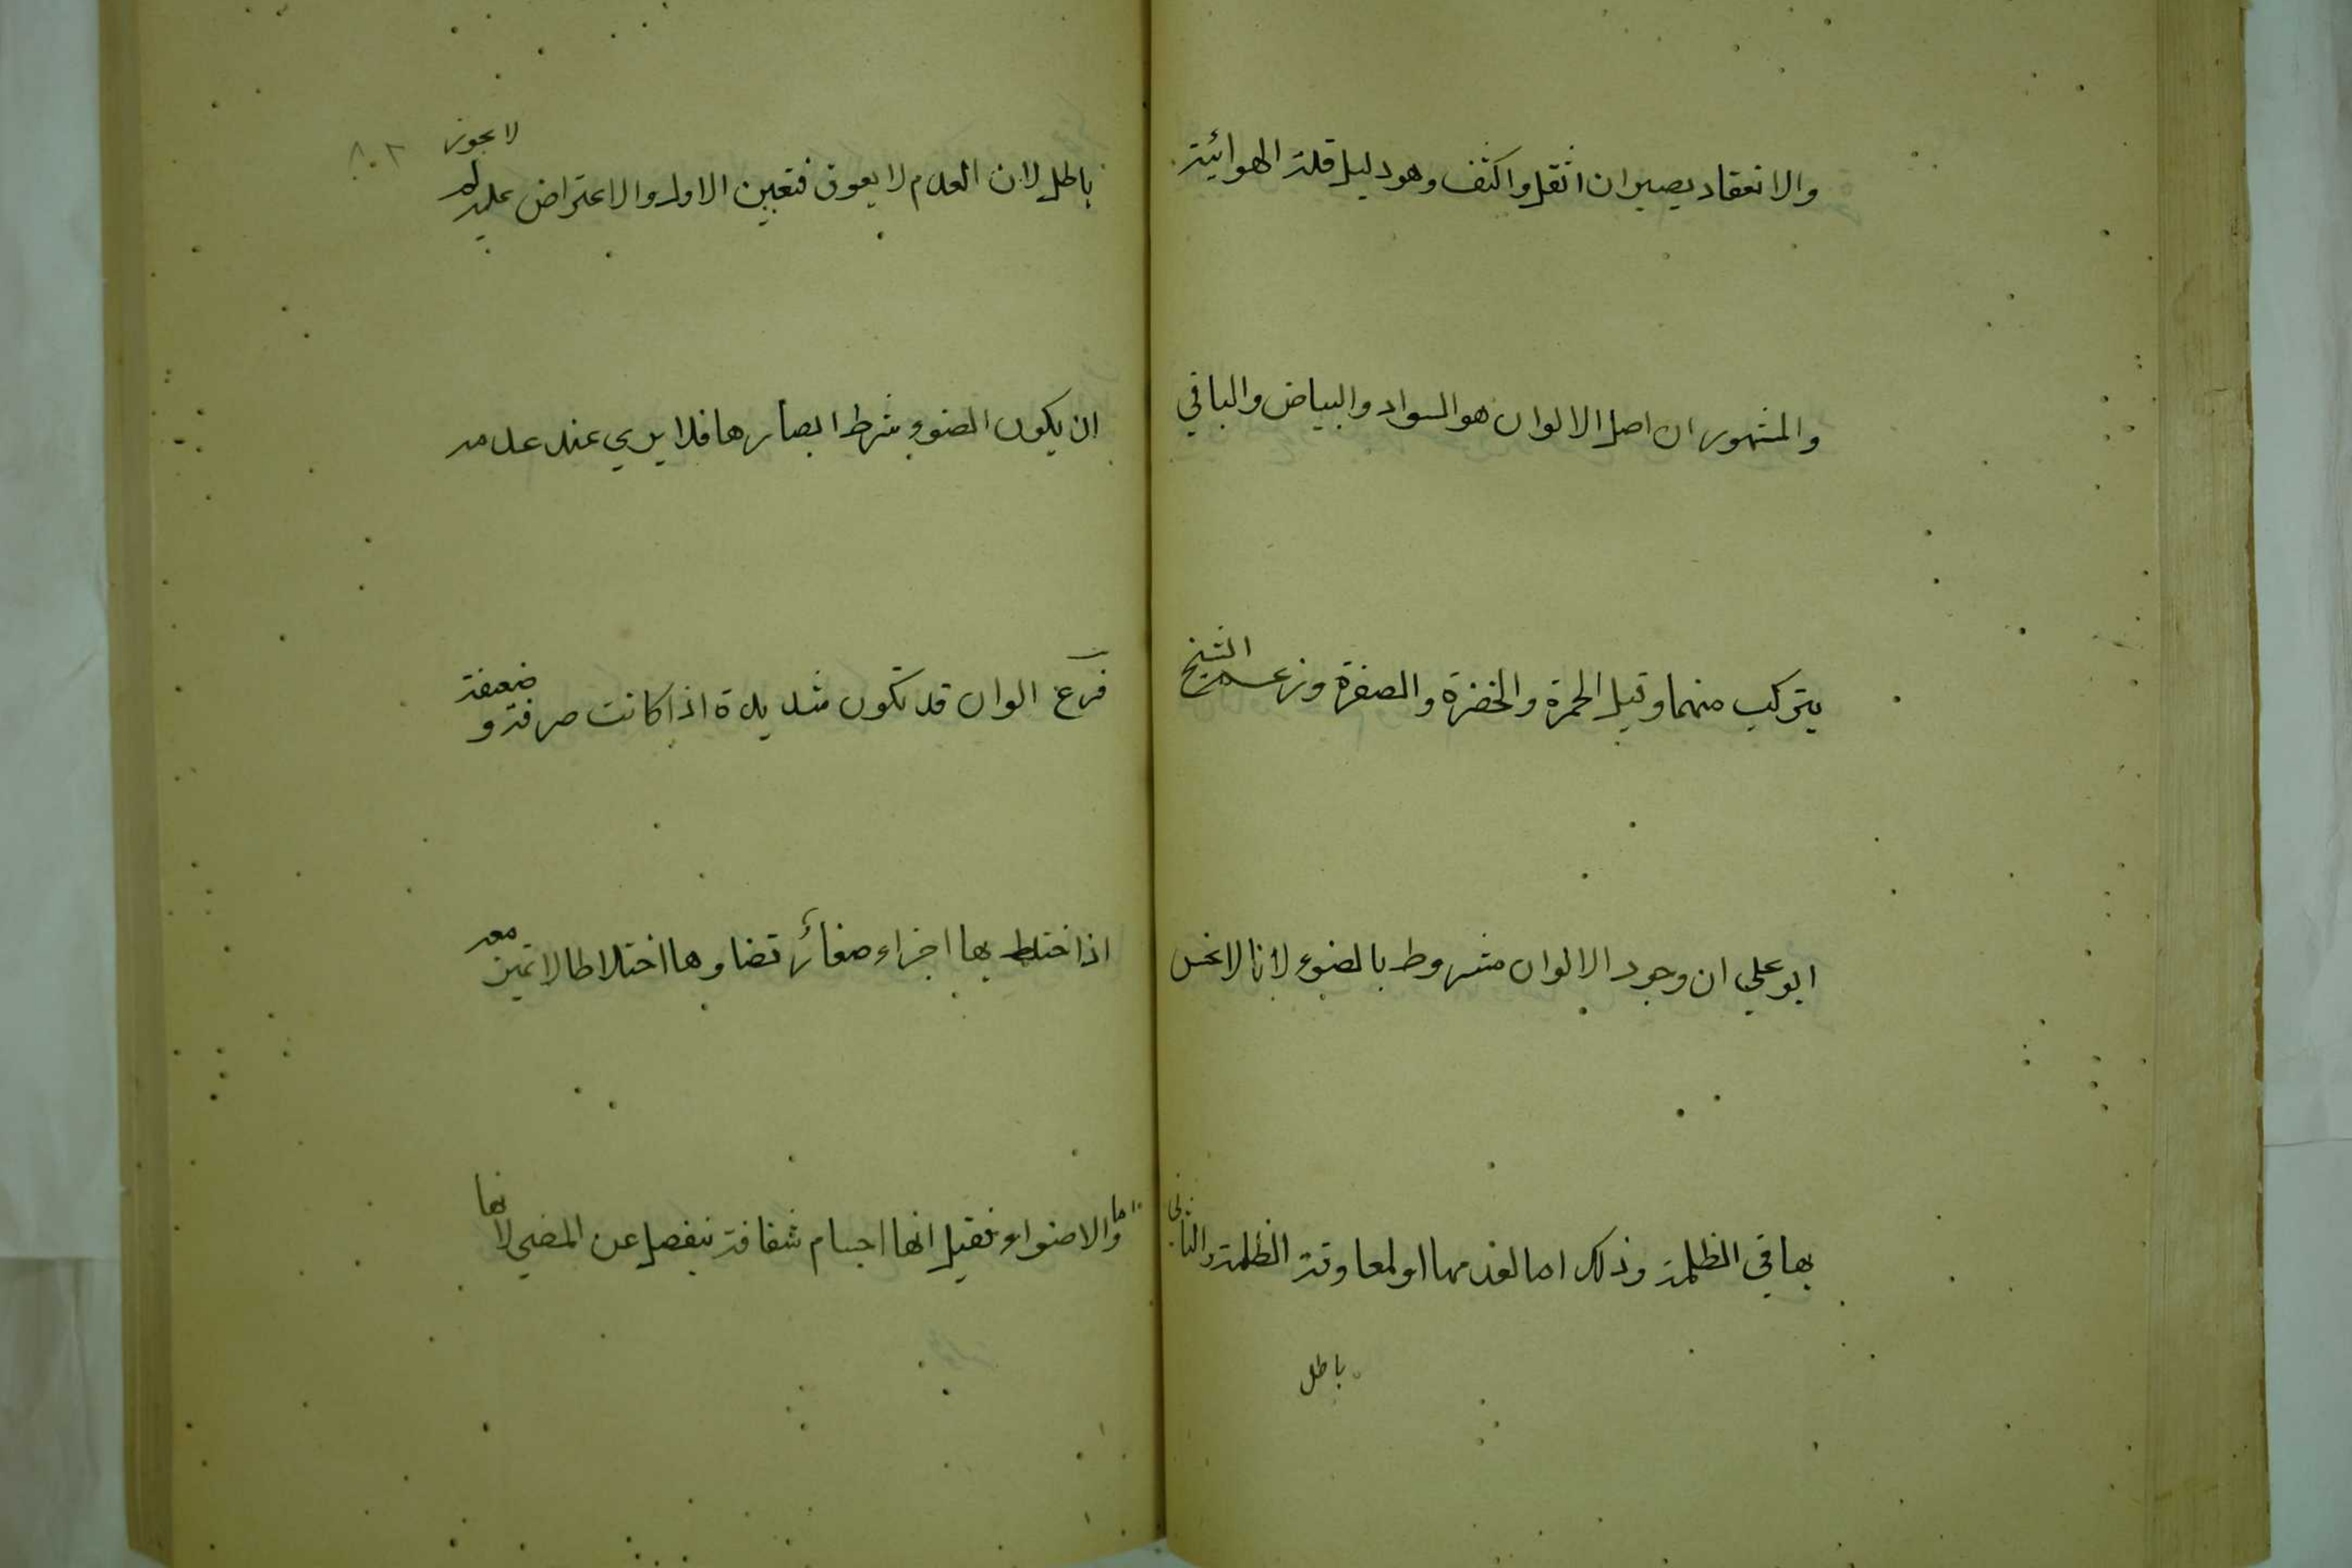 والانعقاد يصيران اثقل واكثف وهو دليل قلة الهوائية
والمشهور ان اصل الالوان هو السواد والبياض والباقي
يتركب منهما وقيل الحمرة والخضرة والصفرة وزعم الشيخ
ابو علي ان وجود الالوان مشروط بالضوء لانا لا نحس
بها في الظلمة وذلك اما لعدمها او لمعاوقة الظلمة والثاني
باطل
٨٠٢
باطل لان العدم لا يعوق فتعين الاول والاعتراض عليه لم لا يجوز
ان يكون الضوء شرط ابصارها فلا يري عند عدمه
فرع الوان قد تكون شديدة اذا كانت صرفة و ضعيفة
اذا ختلط بها اجزاء صغائر تضاوها اختلاطا لا تميز معه
واما الاضواء فقيل انها اجسام شفافة ينفصل عن المضي لانها